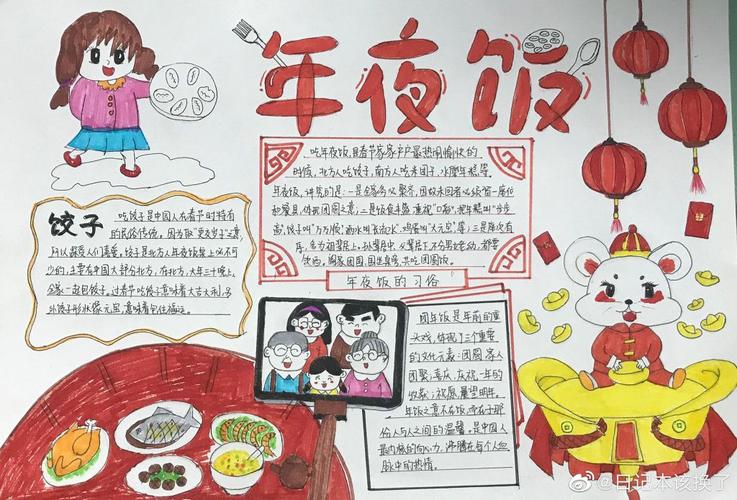 年夜饭
吃年夜饭,是春节家家户户最热闹愉快的
时候,北方人吃饺子,南方人吃米团子、水磨年糕等。
年夜饭,讲究的是:一是全家务必聚齐,因故未回者必须留一座位
和餐具,体现团圆之意;二是饭食丰盛,重视“口彩”,把年糕叫“步步
高”,饺子叫“万万顺”,酒水叫“长流水”,鸡蛋叫“大元宝”等;三是座次有
序,多为祖辈居上,孙辈居中,父辈居下,不分男女老幼,都要
饮酒。
共吃团圆饭。
年夜饭的习俗
饺子
吃饺子是中国人在春节时特有
的民俗传统。因为取“更岁交子”之意,
所以最受人们喜爱。饺子是北方人年夜饭桌上必不可
少的,主要在中国大部分北方,在北方,大年三十晚上,
全家一起包饺子。过春节吃饺子意味着大吉大利。另
外饺子形状像元宝,意味着包住福运。
团年饭是年前的重
头戏,体现了三个重要
的文化元素:团圆,家人
团聚;喜庆,庆祝一年的
收获;祝愿,展望明年。
年饭之意不在饭,而在于那
份人与人之间的温馨。是中国人
最内核的向心力,沸腾在每个人血
脉中的热情。
@日记本该换了